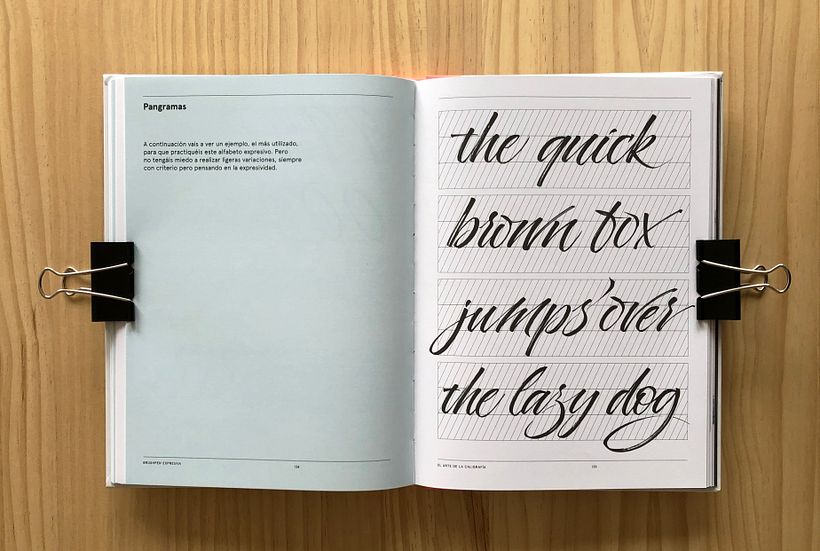 Pangramas
A continuación vais a ver un ejemplo, el más utilizado,
para que practiquéis este alfabeto expresivo. Pero
no tengáis miedo a realizar ligeras variaciones, siempre
con criterio pero pensando en la expresividad.
BRUSHPEN EXPRESIVA
the quick
brown fox
jumps over
the lazy dog
EL ARTE DE LA CALIGRAFÍA